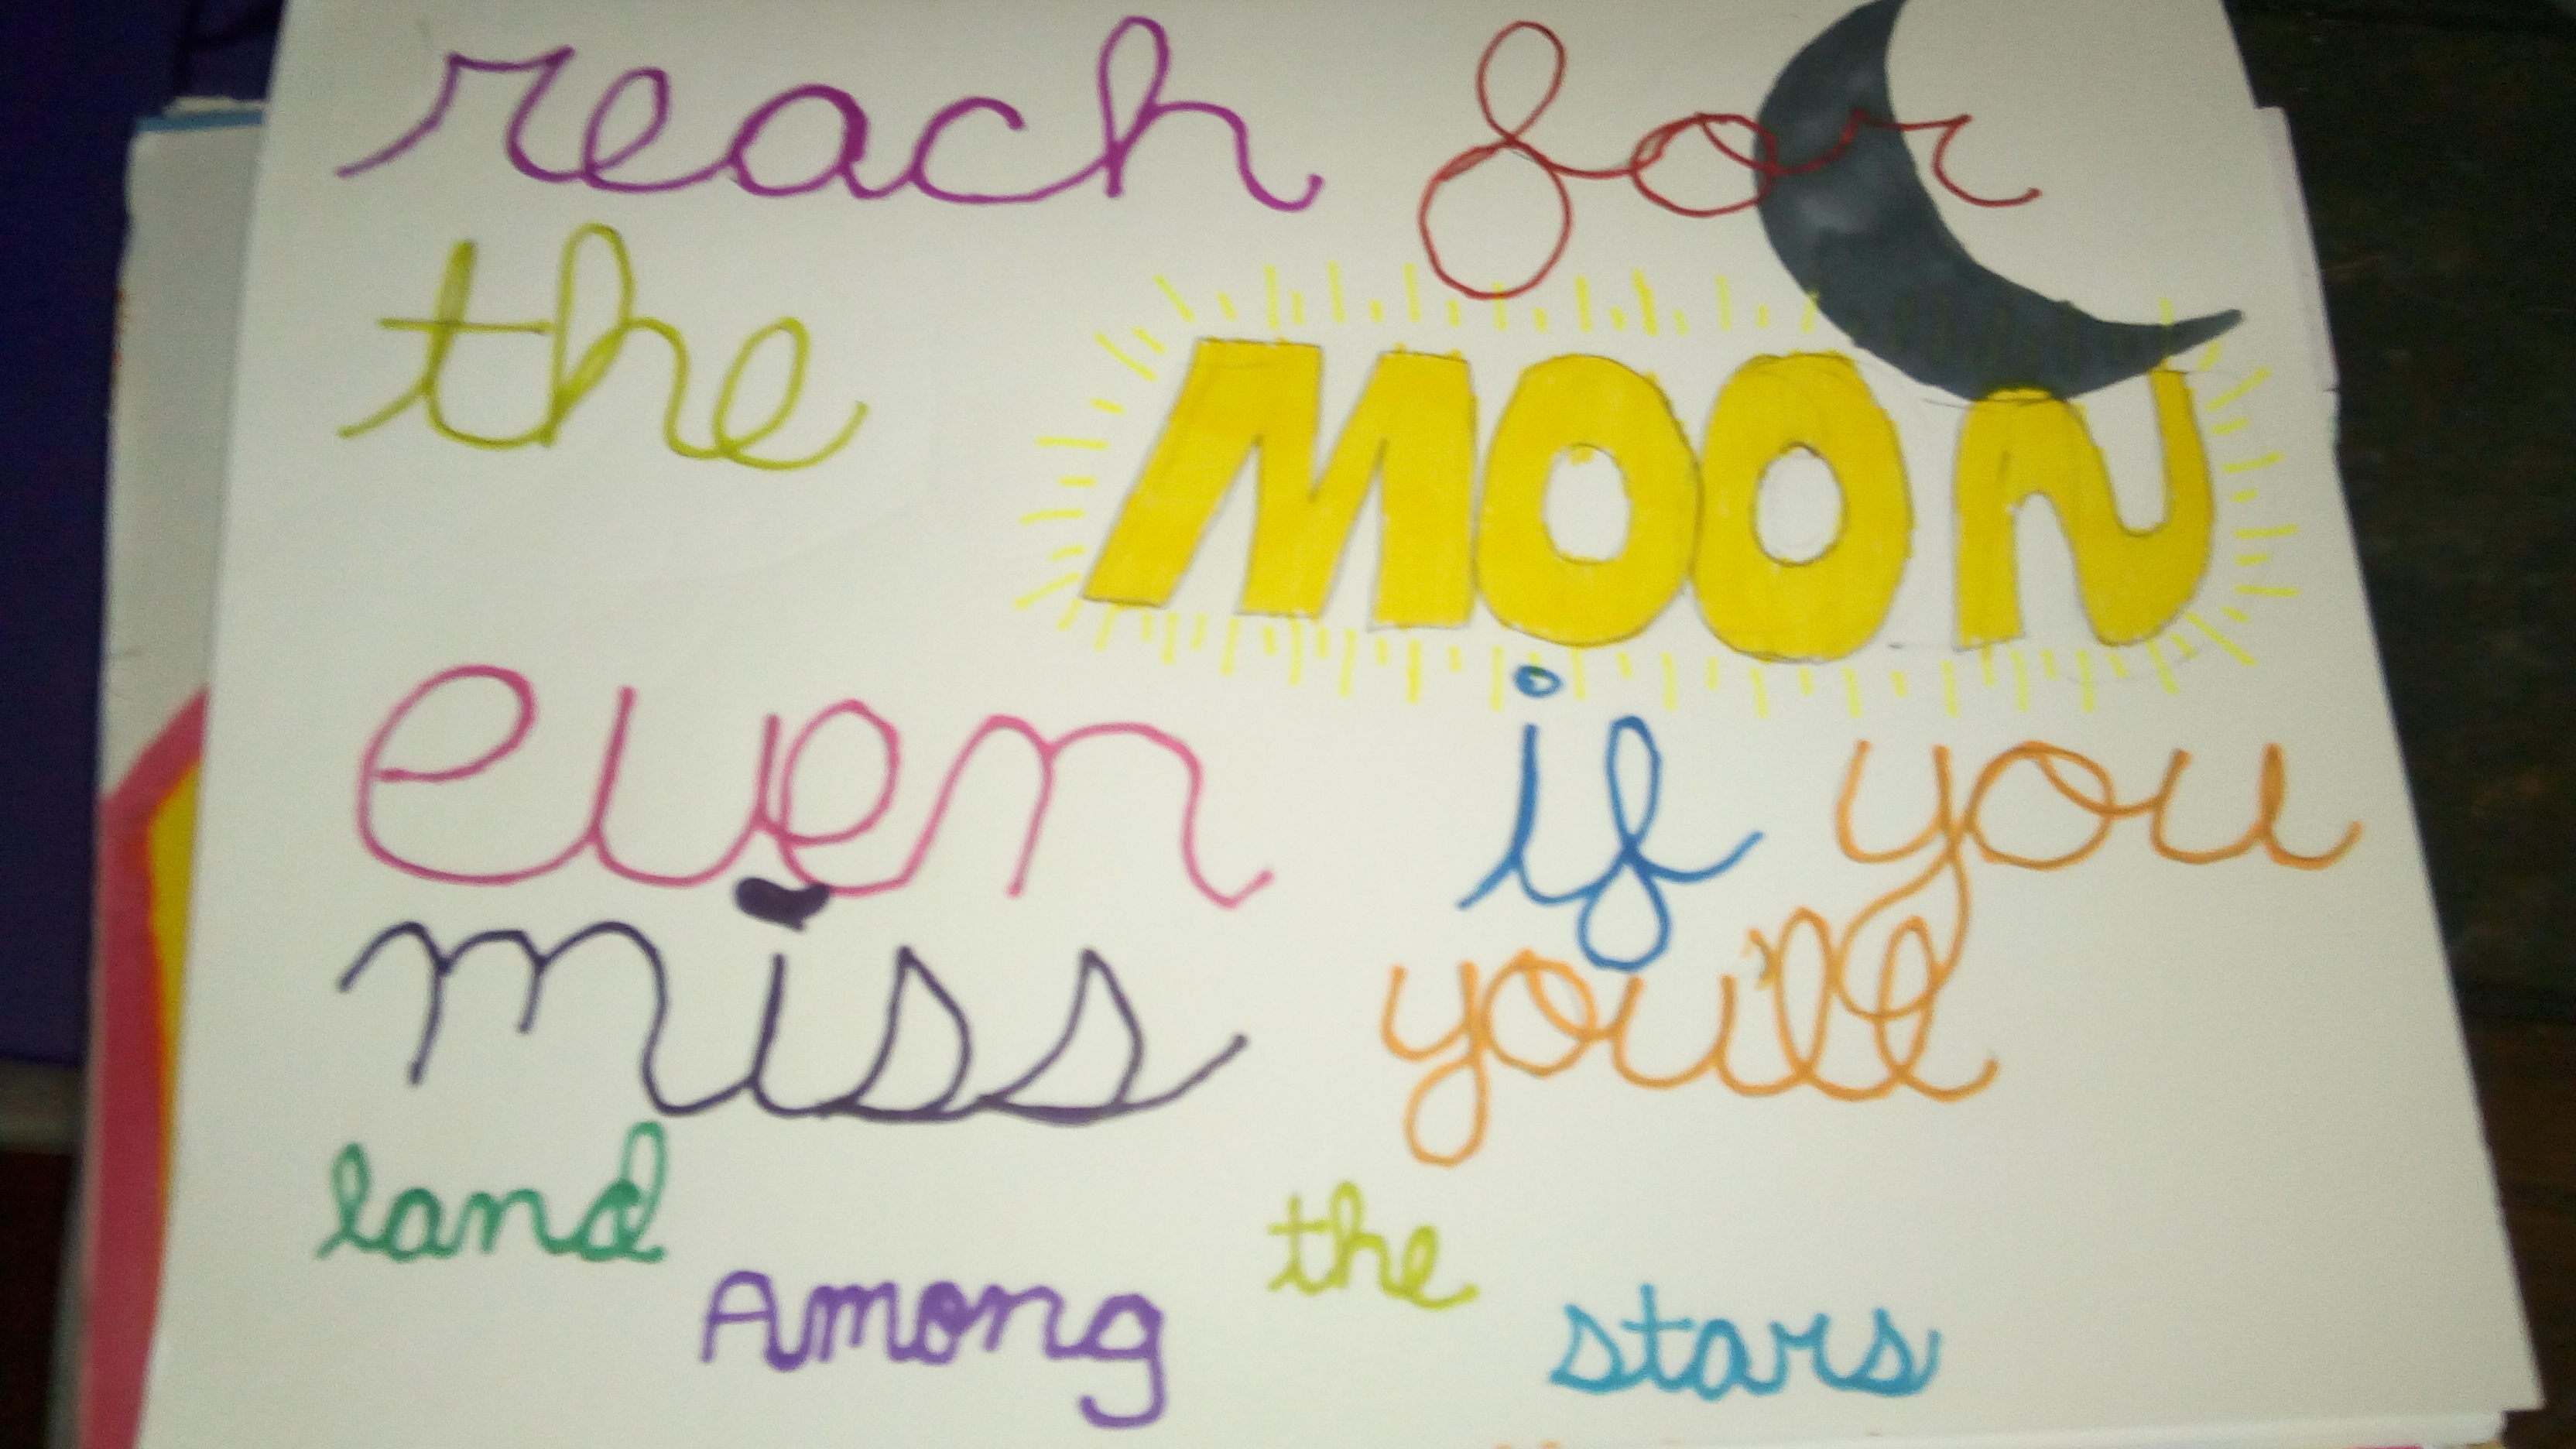 reach for
the MOON
even if you
miss you'll
land Among the stars